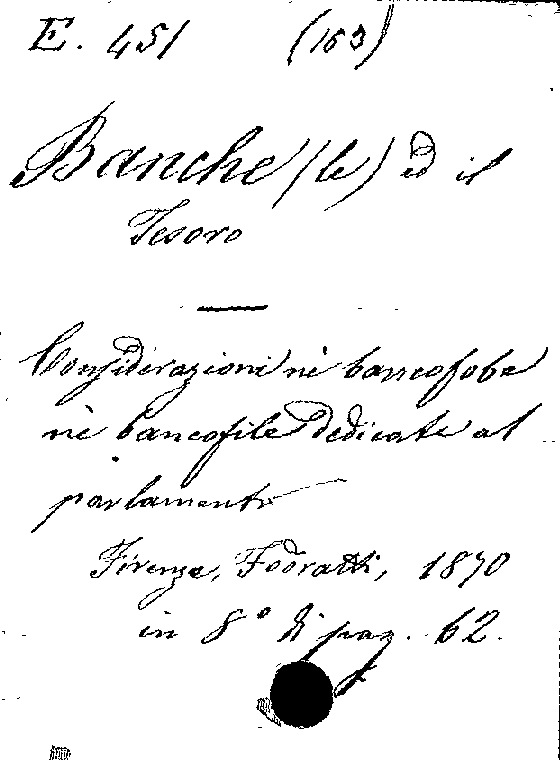 E. 451 (163)
Banche (le) ed il
Tesoro
Considerazioni nè bancofobe
nè bancofile dedicate al
parlamento
Firenze, Fodratti, 1870
in 8° di pag. 62.